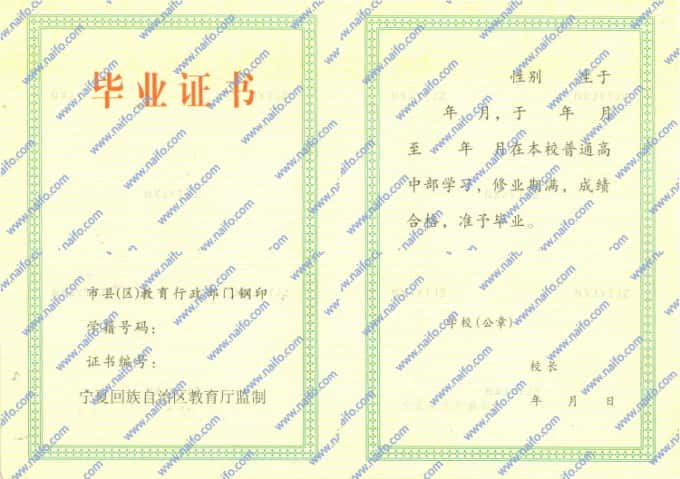 毕业证书
市县(区)教育行政部门钢印
学籍号码:
证书编号:
宁夏回族自治区教育厅监制
性别 生于
年 月,于 年 月
至 年 月在本校普通高
中部学习,修业期满,成绩
合格,准予毕业。
学校(公章)
校长
年 月 日
www.naifo.com